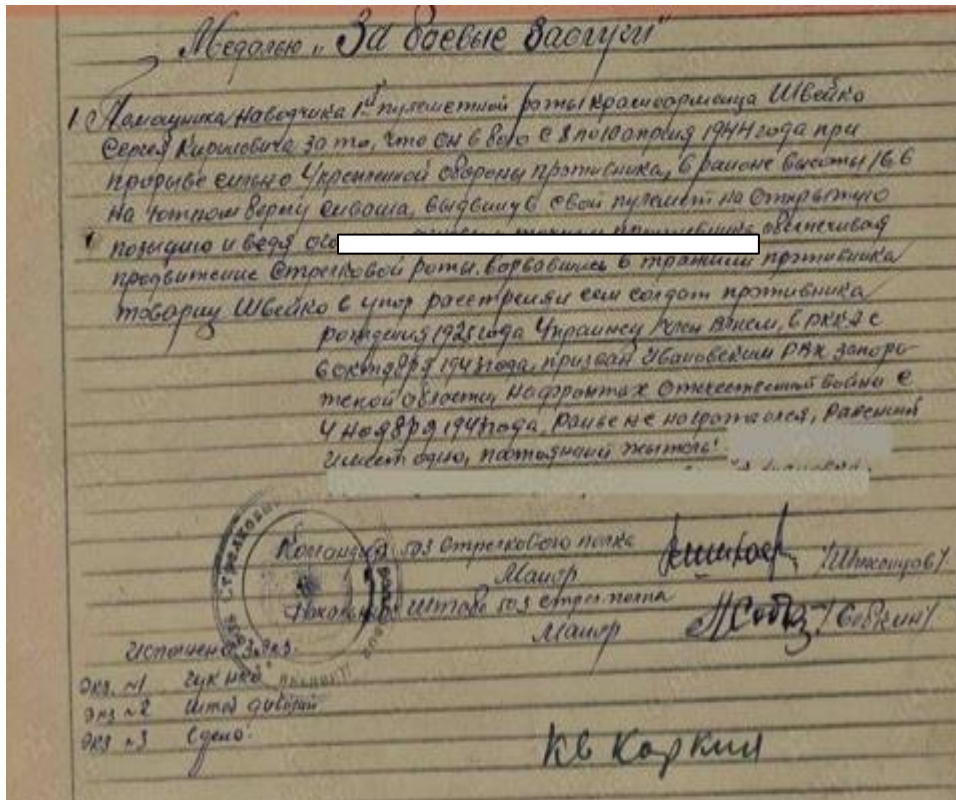 Медалью „За боевые заслуги"
1. Помощника наводчика 1ой пулеметной роты красноармейца Швейко
Сергея Кириловича за то, что он в бою с 8 по 10 апреля 1944 года при
прорыве сильно укрепленной обороны противника, в районе высоты 16.6
на южном берегу сиваша, выдвинув свой пулемет на открытую
позицию и ведя обеспечивая
продвижение стрелковой роты. ворвавшись в траншеи противника
товарищ Швейко в упор расстрелял сем солдат противника
рождения 1925 года Украинец, в РККА с
октября 1943 года, призван Ивановским РВК Запоро-
жской области, на фронтах отечественной войны с
4 ноября 1943 года, ранее не награждался, ранений
имеет одно, постоянный житель:
Командир 503 стрелкового полка
Майор
Начальник штаба 503 стрел. полка
Майор /Собкин/
Исполнено 3 экз.
экз. №1 ГУК НКО
экз №2 штаб дивизии
экз №3 в дело.